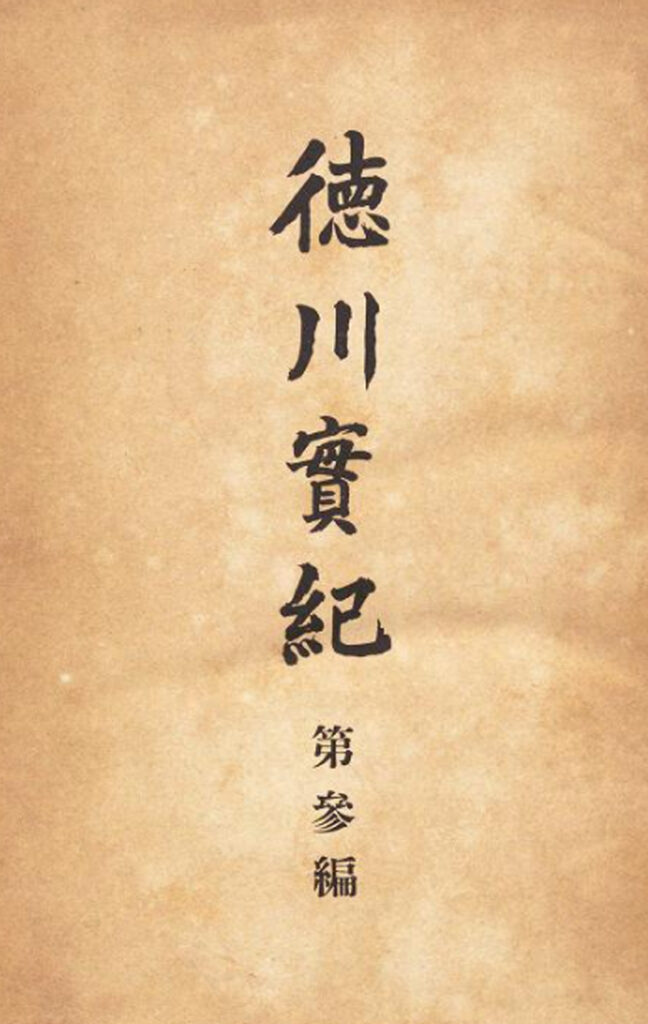 徳川實紀
第參編